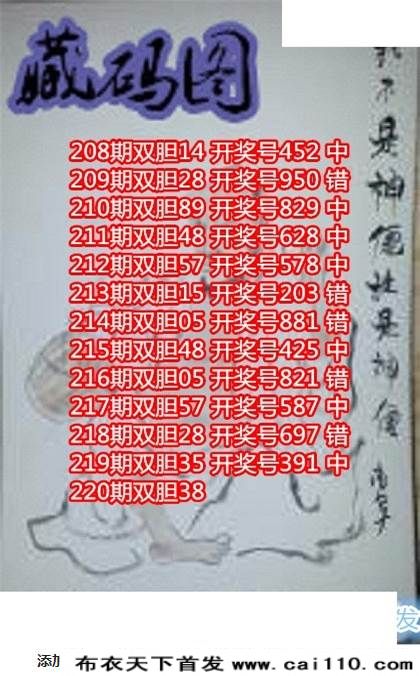 藏码图
我不是神但比是神便
208期双胆14 开奖号452 中
209期双胆28 开奖号950 错
210期双胆89 开奖号829 中
211期双胆48 开奖号628 中
212期双胆57 开奖号578 中
213期双胆15 开奖号203 错
214期双胆05 开奖号881 错
215期双胆48 开奖号425 中
216期双胆05 开奖号821 错
217期双胆57 开奖号587 中
218期双胆28 开奖号697 错
219期双胆35 开奖号391 中
220期双胆38
发
添加
布衣天下首发 www.cai110.com